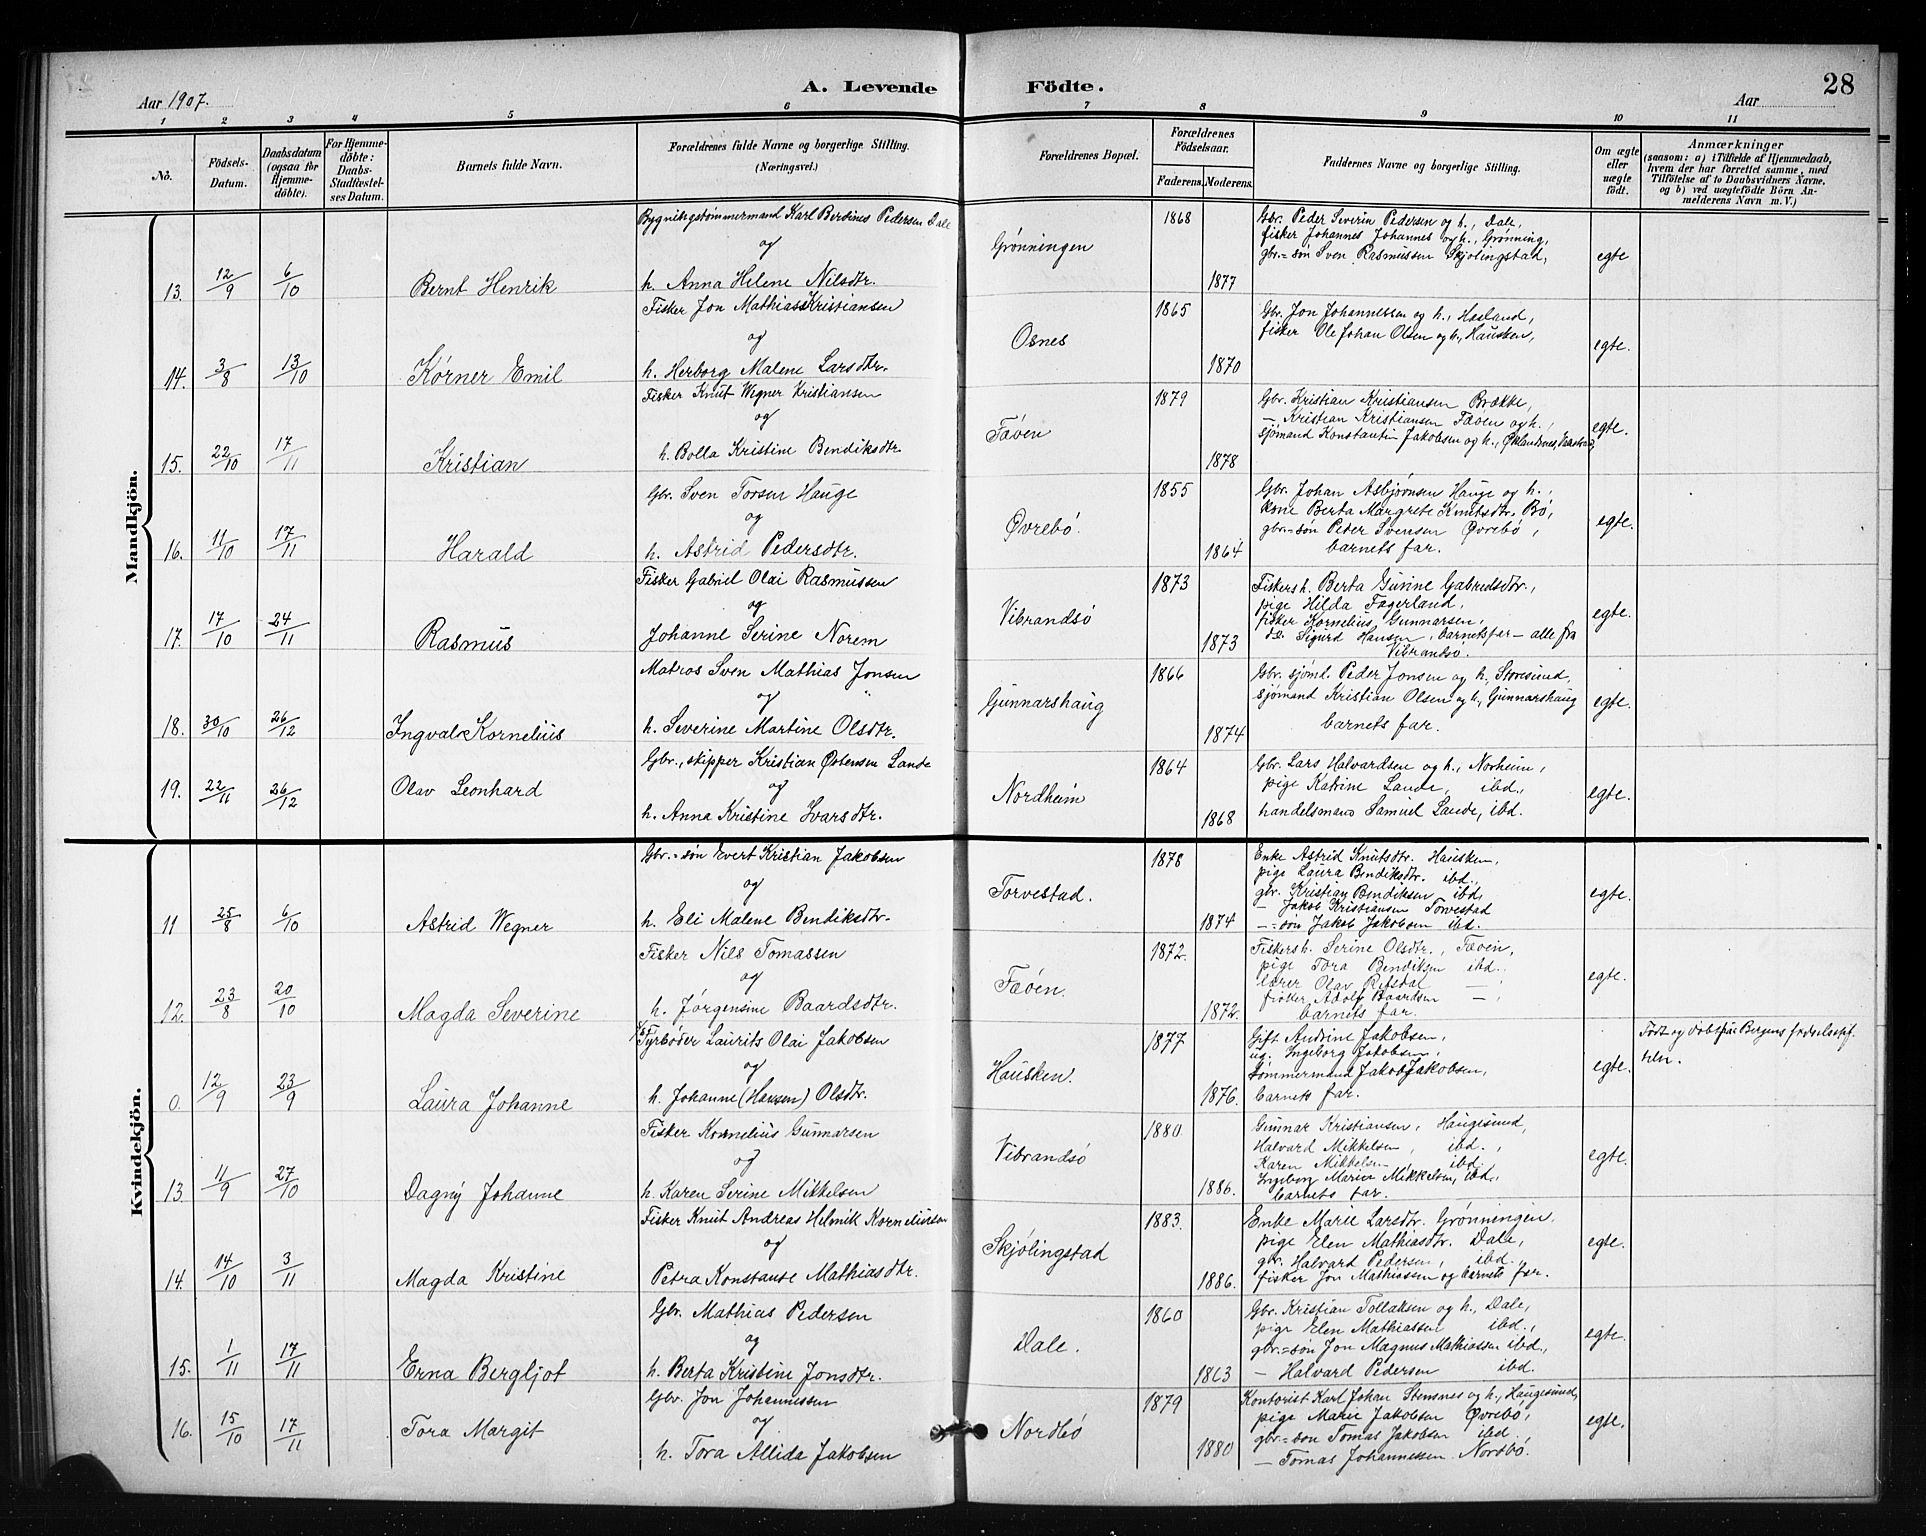 28
Aar 1907.
A. Levende Födte.
Aar
1 2 3 4 5 6 7 8 9 10 11
No.
Födsels-Datum.
Daabsdatum (ogsaa for Hjemmedöbte).
For Hjemmedöbte: Daabs-Stadfæstelses Datum.
Barnets fulde Navn.
Forældrenes fulde Navne og borgerlige Stilling. (Næringsvei.)
Forældrenes Bopæl.
Forældrenes Födselsaar.
Faderens. Moderens.
Faddernes Navne og borgerlige Stilling.
Om ægte eller uægte födt.
Anmærkninger
(saasom: a) i Tilfælde af Hjemmedaab, hvem der har forrettet samme, med Tilföielse af to Daabsvidners Navne, og b) ved uægtefödte Börn Anmelderens Navn m. V.)
Mandkjön.
13. 12/9 6/10 Bernt Henrik
Bygningstømmermand Karl Bertines Pedersen Dale
og
h. Anna Helene Nilsdtr.
Grønningen 1868 1877
Gbr. Peder Severin Pedersen og h., Dale,
fisker Johannes Johannes og h., Grønning,
gbr.=søn Sven Rasmussen Skjølingstad,
egte
14. 3/8 13/10 Kørner Emil
Fisker Jon Mathias Kristiansen
og
h. Herborg Malene Larsdtr.
Osnes 1865 1870
Gbr. Jon Johannessen og h., Haaland,
fisker Ole Johan Olsen og h., Hausken,
egte.
15. 22/10 17/11 Kristian
Fisker Knut Wegner Kristiansen
og
h. Bolla Kristine Bendiksdtr.
Føvøen 1879 1878
Gbr. Kristian Kristiansen Brække,
— Kristian Kristiansen Føvøen og h.,
sjømand Konstantin Jakobsen og h.,
egte.
16. 11/10 17/11 Harald
Gbr. Sven Torsen Hauge
og
h. Astrid Pedersdtr.
Øvrebø. 1855 1864
Gbr. Johan Asbjørnsen Hauge og h.,
kone Berta Margrete Knutsdtr. Bø,
gbr.=søn Peder Svensen Øvrebø,
barnets far.
egte.
17. 17/10 24/11 Rasmus
Fisker Gabriel Olai Rasmussen
og
Johanne Serine Norem
Vibrandsø 1873 1873
Fiskersh. Berta Gurine Gabrielsdtr.,
pige Hilda Fagerland,
fisker Kornelius Gunnarsen,
do. Sigurd Hansen, barnets far — alle fra
Vibrandsø.
egte.
18. 30/10 26/12 Ingvald Kornelius
Matros Sven Mathias Jonsen
og
h. Severine Martine Olsdtr.
Gunnarshaug 1866 1874
Gbr. sjøml. Peder Jonsen og h., Storesund,
sjømand Kristian Olsen og h., Gunnarshaug
barnets far.
egte.
19. 22/11 26/12 Olav Leonhard
Gbr., skipper Kristian Østensen Lande
og
h. Anna Kristine Ivarsdtr.
Nordheim 1864 1868
Gbr. Lars Halvardsen og h., Norheim,
pige Katrine Lande, ibd.,
handelsmand Samuel Lande, ibd.
egte.
Kvindekjön.
11 25/8 6/10 Astrid Wegner
Gbr.=søn Evert Kristian Jakobsen
og
h. Eli Malene Bendiksdtr.
Torvestad. 1878 1874
Enke Astrid Knutsdtr. Hausken,
pige Laura Bendiksdtr. ibd.,
gbr. Kristian Bendiksen ibd,
— Jakob Kristiansen Torvestad
—=søn Jakob Jakobsen ibd.
egte.
12. 23/8 20/10 Magda Severine
Fisker Nils Tomassen
og
h. Jørgensine Baardsdtr.
Føvøen. 1872. 1872.
Fiskersh. Serine Olsdtr., Føvøen,
pige Tora Bendiksen ibd.
lærer Olav Refsdal — ,
fisker Adolf Baardsen — ,
barnets far.
egte.
0. 12/9 23/9 Laura Johanne
Fyrbøder Laurits Olai Jakobsen
og
h. Johanne (Hansen) Olsdtr.
Hausken. 1877 1876.
Gift Andrine Jakobsen,
ug. Ingeborg Jakobsen,
tømmermand Jakob Jakobsen,
barnets far.
egte.
Født og døbt paa Bergens fødselsstiftelse.
13. 11/9 27/10 Dagny Johanne
Fisker Kornelius Gunnarsen
og
h. Karen Serine Mikkelsen
Vibrandsø 1880 1886.
Gunnar Kristiansen, Haugesund,
Halvard Mikkelsen, ibd.,
Karen Mikkelsen ibd.
Ingeborg Marie Mikkelsen, ibd.,
barnets far.
egte.
14. 14/10 3/11 Magda Kristine
Fisker Knut Andreas Helmik Korneliusen
og
Petra Konstanse Mathiasdtr.
Skjølingstad 1883. 1886.
Enke Marie Larsdtr. Grønningen.
pige Elen Mathiasdtr. Dale,
gbr. Halvard Pedersen, ibd.,
fisker Jon Mathiassen og barnets far.
egte.
15. 1/11 17/11 Erna Bergljot
Gbr. Mathias Pedersen
og
h. Berta Kristine Jonsdtr.
Dale. 1860 1863
Gbr. Kristian Tollaksen og h., Dale,
pige Elen Mathiassen ibd.,
gbr.=søn Jon Magnus Mathiassen ibd.,
— Halvard Pedersen ibd.
egte.
16. 15/10 17/11 Tora Margit
Gbr. Jon Johannessen
og
h. Tora Allida Jakobsen
Nordbø 1879 1880
Kontorist Karl Johan Stensnes og h., Haugesund,
pige Marie Jakobsen Øvrebø,
gbr.=søn Tomas Jakobsen ibd.
— Tomas Johannessen Nordbø.
egte.